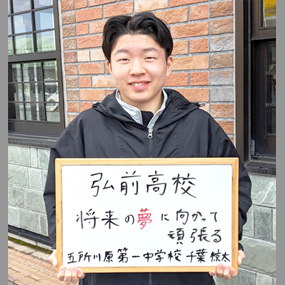 弘前高校
将来の夢に向かって
頑張る
五所川原第一中学校 千葉 悠太